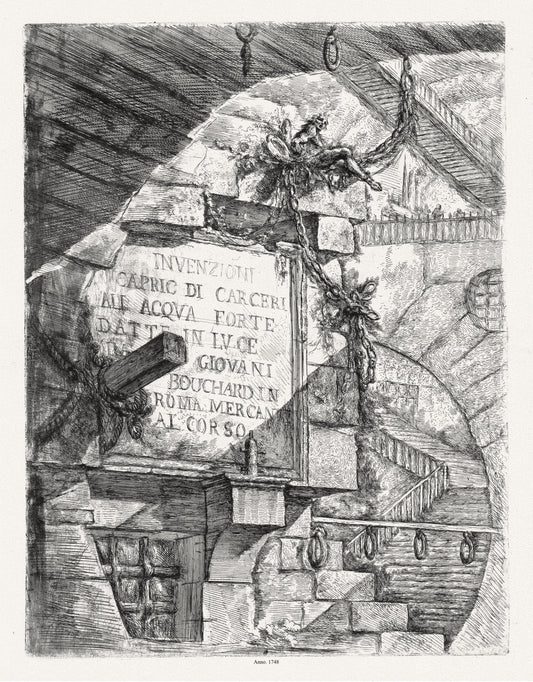 INVENZIONI
CAPRIC DI CARCERI
ALL ACQVA FORTE
DATTE IN LVCE
GIOVANI
BOUCHARD IN
ROMA MERCAN
AL CORSO
Anno. 1748